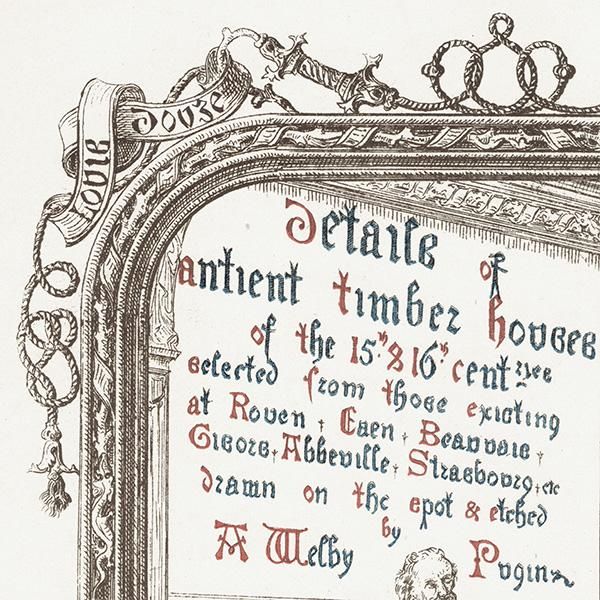 Lovis Dovze
Details of
antient timber hovses
of the 15th & 16th centryes
selected from those existing
at Roven, Caen, Beavvais,
Gisors, Abbeville, Strasbovrg, etc
drawn on the spot & etched
by
A Welby Pvgin